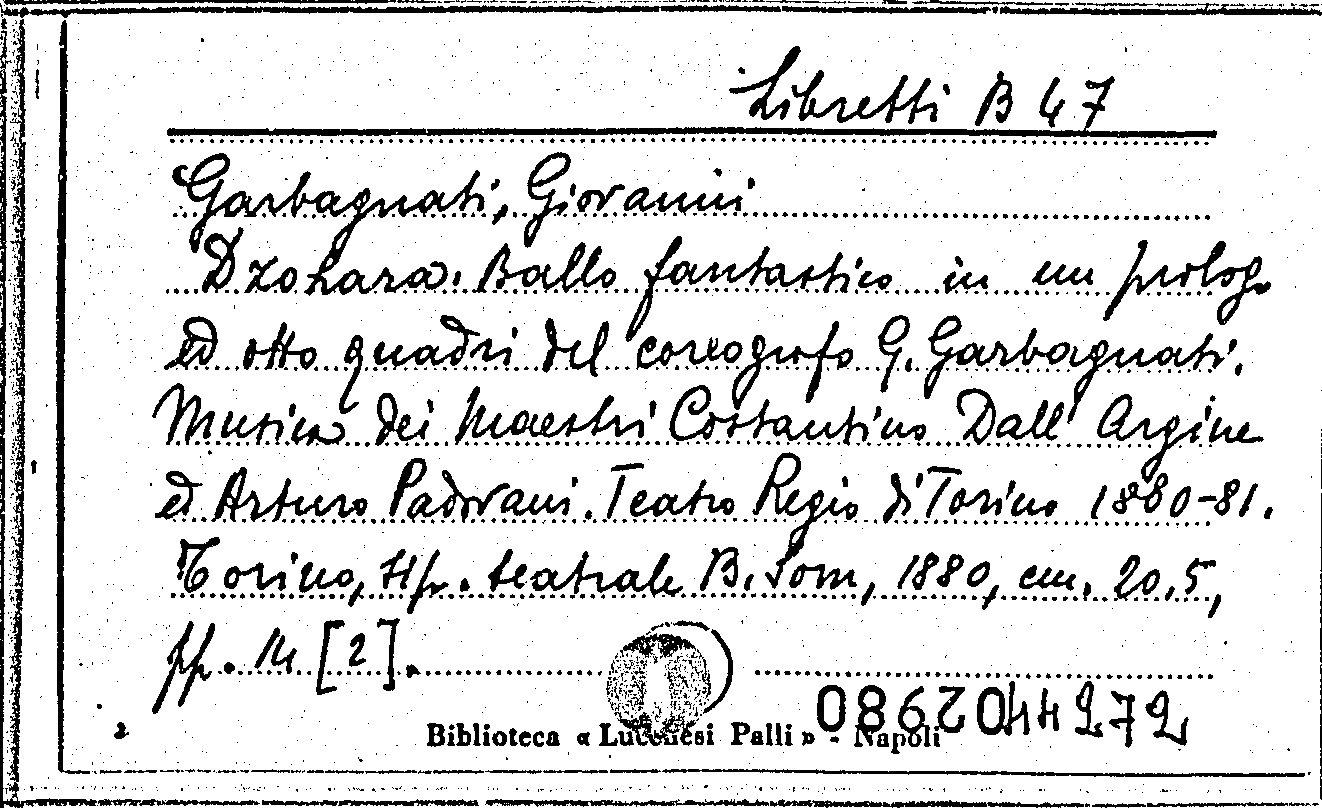 Libretti B 47
Garbagnati, Giovanni
Dzohara. Ballo fantastico in un prologo
ed otto quadri del coreografo G. Garbagnati.
Musica dei Maestri Costantino Dall' Argine
ed Arturo Padovani. Teatro Regio di Torino 1880-81.
Torino, tip. teatrale B. Som, 1880, cm. 20.5,
pp. 14 [2].
2
Biblioteca « Lucchesi Palli » - Napoli